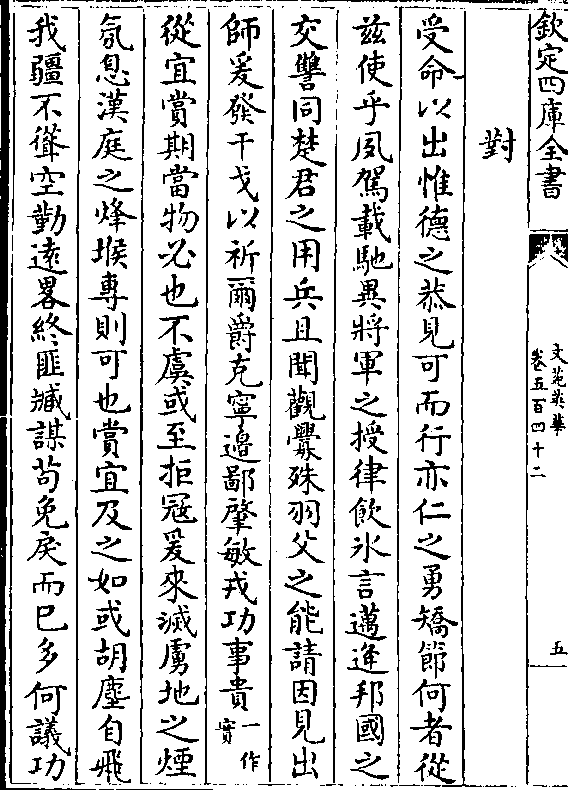 欽定四庫全書
文苑英華
卷五百四十二
五
對
受命以出惟德之恭見可而行亦仁之勇矯節何者從
茲使乎夙駕載馳異將軍之授律飲氷言邁逢邦國之
交讐同楚君之用兵且聞觀釁殊羽父之能請因見出
師爰發干戈以祈爾爵克寧邉鄙肇敏戎功事貴一作實
從宜賞期當物必也不虞或至拒冦爰來滅虜地之煙
氛息漢庭之烽堠專則可也賞宜及之如或胡塵自飛
我疆不聳空勤遠畧終匪臧謀苟免戾而已多何議功